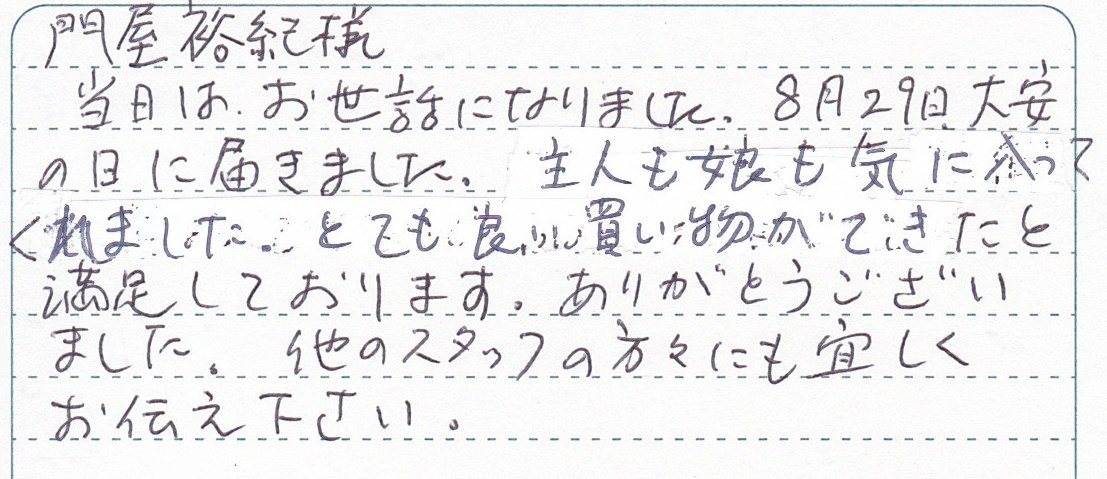 門屋裕紀様
当日は、お世話になりました。8月29日、大安
の日に届きました。主人も娘も気に入って
くれました。とても良い買い物ができたと
満足しております。ありがとうござい
ました。他のスタッフの方々にも宜しく
お伝え下さい。